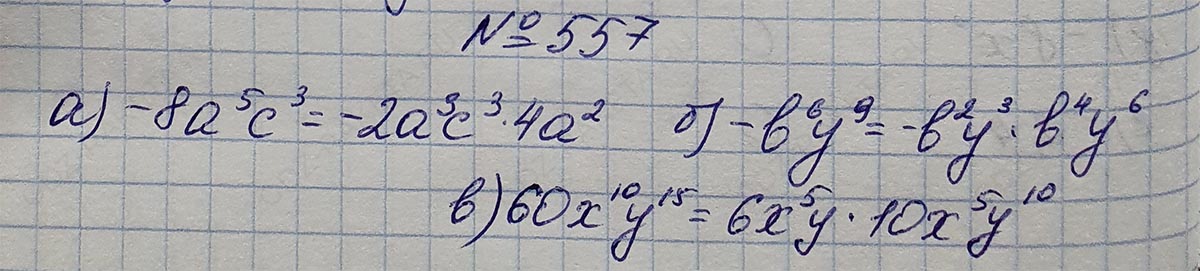 №557
а) -8a⁵c³=-2a³c³·4a² б) -b⁶y⁹=-b²y³·b⁴y⁶
в) 60x¹⁰y¹⁵=6x⁵y·10x⁵y¹⁰